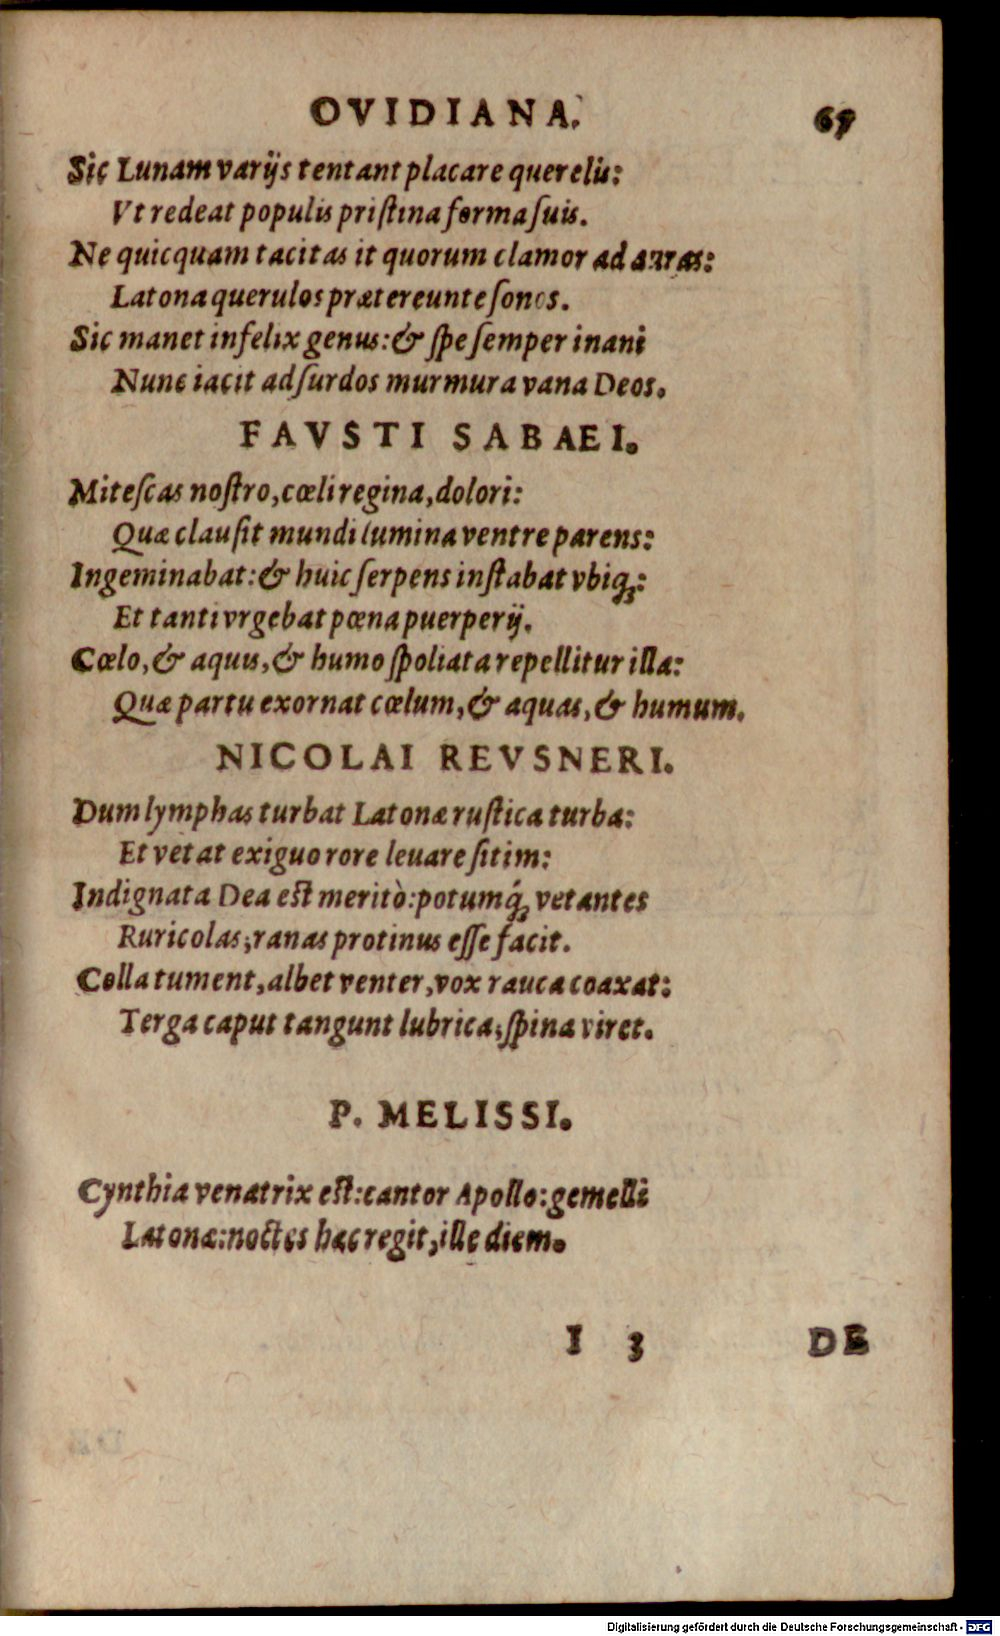 OVIDIANA. 67
Sic Lunam varijs tentant placare querelis:
Vt redeat populis pristina forma suis.
Ne quicquam tacitas it quorum clamor ad auras:
Latona querulos prætereunte sonos.
Sic manet infelix genus: & spe semper inani
Nunc iacit ad surdos murmura vana Deos.
FAVSTI SABAEI.
Mitescas nostro, cœli regina, dolori:
Quæ clausit mundi lumina ventre parens:
Ingeminabat: & huic serpens instabat vbiq;:
Et tanti vrgebat pœna puerperij.
Cœlo, & aquis, & humo spoliata repellitur illa:
Quæ partu exornat cœlum, & aquas, & humum.
NICOLAI REVSNERI.
Dum lymphas turbat Latonæ rustica turba:
Et vetat exiguo rore leuare sitim:
Indignata Dea est meritò: potumq́; vetantes
Ruricolas; ranas protinus esse facit.
Colla tument, albet venter, vox rauca coaxat:
Terga caput tangunt lubrica; spina viret.
P. MELISSI.
Cynthia venatrix est: cantor Apollo: gemelli
Latonæ: noctes hæc regit, ille diem.
I 3 DE
Digitalisierung gefördert durch die Deutsche Forschungsgemeinschaft - DFG